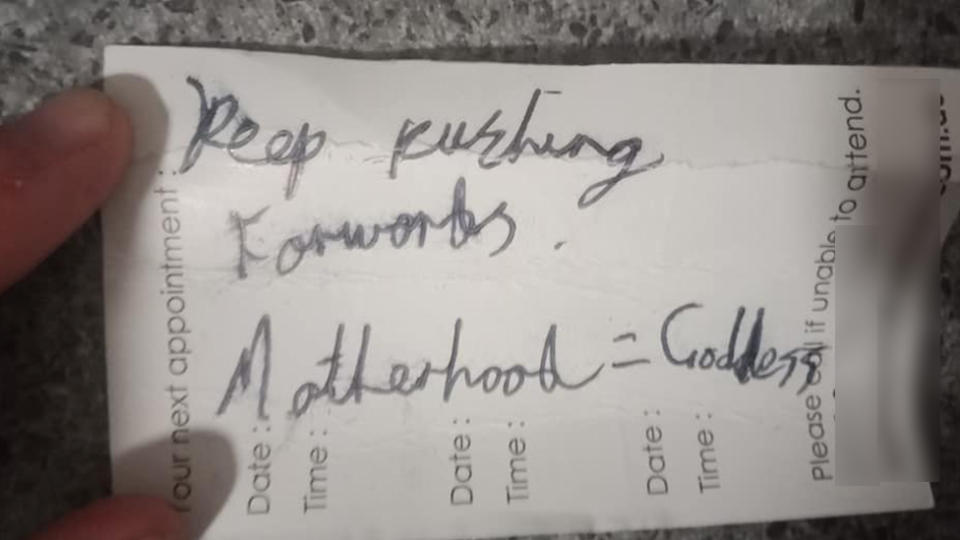 Keep pushing
Forwards.
Motherhood = Goddess
Your next appointment:
Date:
Time:
Date:
Time:
Date:
Time:
Please call if unable to attend.